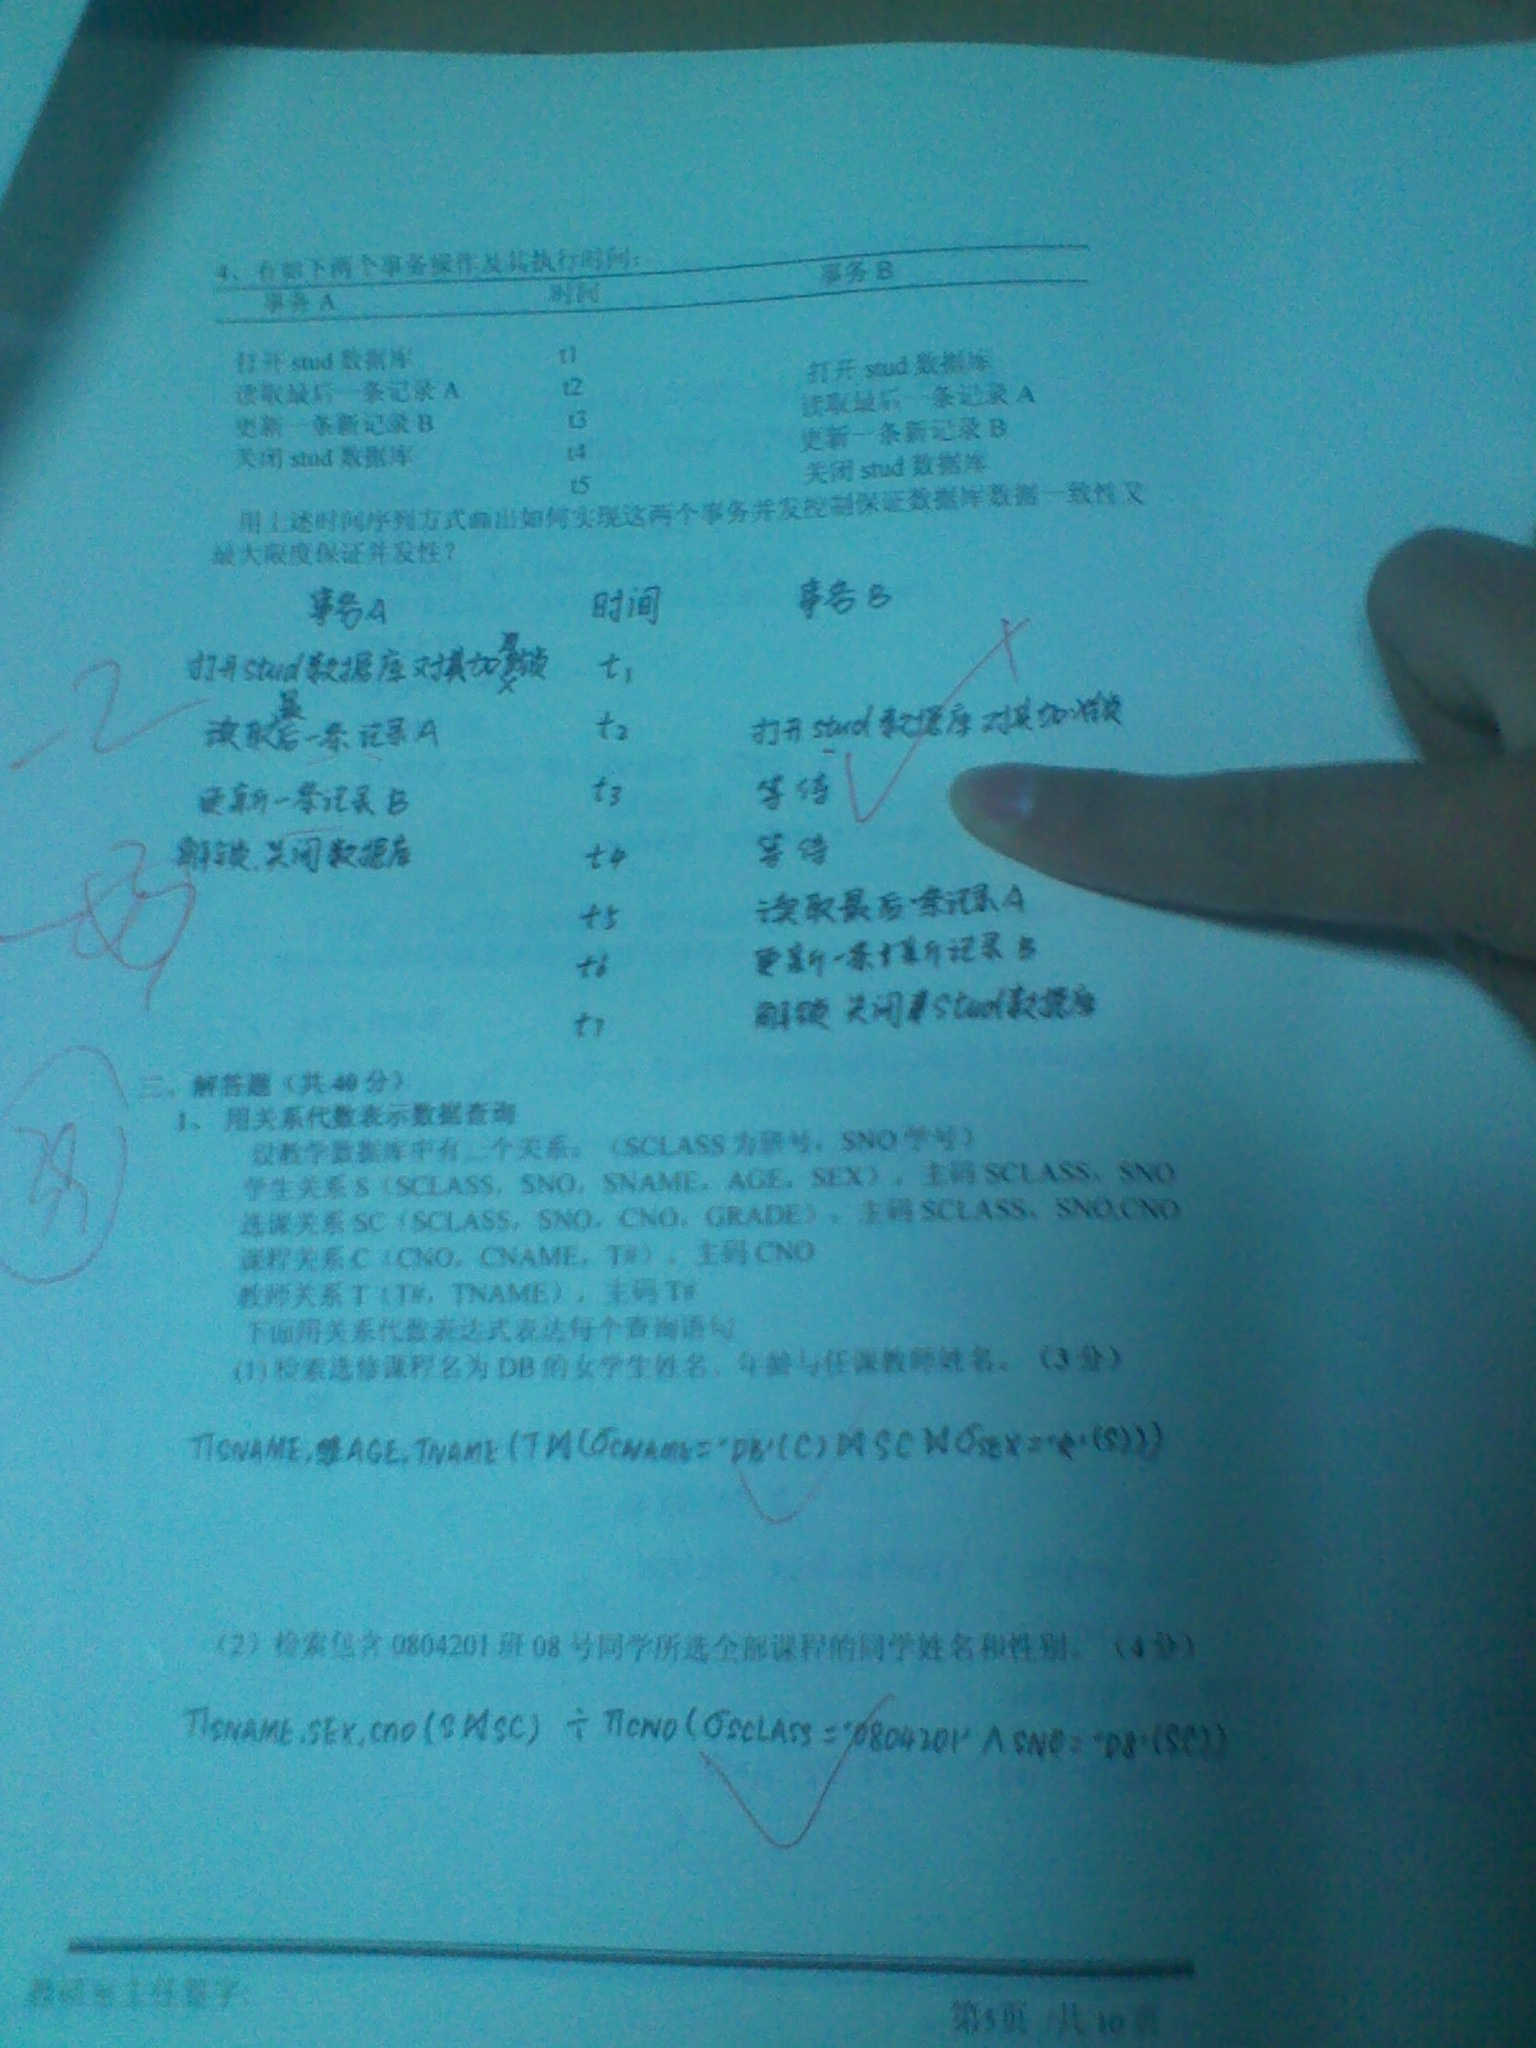 4、有如下两个事务操作及其执行时间:
事务 A 时间 事务 B
打开 stud 数据库 t1
读取最后一条记录 A t2 打开 stud 数据库
更新一条新记录 B t3 读取最后一条记录 A
关闭 stud 数据库 t4 更新一条新记录 B
t5 关闭 stud 数据库
用上述时间序列方式画出如何实现这两个事务并发控制保证数据库数据一致性又
最大限度保证并发性?
事务A 时间 事务B
打开stud数据库 对其加 锁 t1
读取最后一条记录A t2 打开stud数据库 对其加 锁
更新一条记录B t3 等待
解锁.关闭数据库 t4 等待
t5 读取最后一条记录A
t6 更新一条 新记录B
t7 解锁 关闭 stud数据库
-2
三、解答题(共 40 分)
1、 用关系代数表示数据查询
设教学数据库中有 个关系。(SCLASS 为班号,SNO 学号)
学生关系 S(SCLASS,SNO,SNAME,AGE,SEX),主码 SCLASS、SNO
选课关系 SC(SCLASS,SNO,CNO,GRADE),主码 SCLASS、SNO,CNO
课程关系 C(CNO,CNAME,T#),主码 CNO
教师关系 T(T#,TNAME),主码 T#
下面用关系代数表达式表达每个查询语句
(1) 检索选修课程名为 DB 的女学生姓名、年龄与任课教师姓名。(3 分)
ΠSNAME,AGE,TNAME(T⋈(σCNAME='DB'(C)⋈SC⋈σSEX='女'(S)))
(2)检索包含 0804201 班 08 号同学所选全部课程的同学姓名和性别。(4 分)
ΠSNAME,SEX,CNO(S⋈SC) ÷ ΠCNO(σSCLASS='0804201'∧SNO='08'(SC))
教研室主任签字:
第5页 /共 10 页